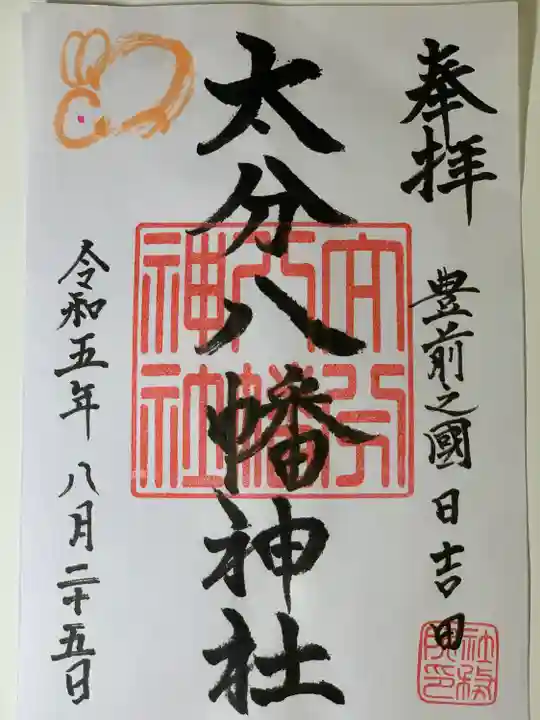 奉拝
豊前之國 日吉田
太分八幡神社
太分八幡神社
社務所印
令和五年 八月二十五日